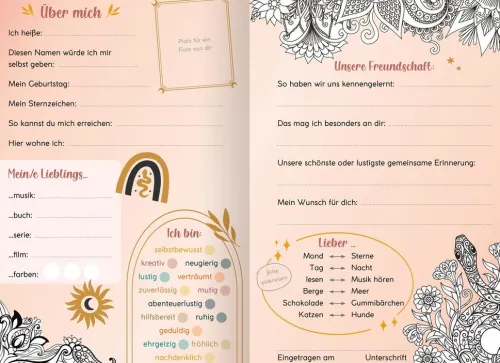 Über mich
Ich heiße:
Diesen Namen würde ich mir
selbst geben:
Mein Geburtstag:
Mein Sternzeichen:
So kannst du mich erreichen:
Hier wohne ich:
Platz für ein
Foto von dir
Mein/e Lieblings...
...musik:
...buch:
...serie:
...film:
...farben:
Ich bin:
selbstbewusst
kreativ neugierig
lustig verträumt
zuverlässig mutig
abenteuerlustig
hilfsbereit ruhig
geduldig
ehrgeizig fröhlich
nachdenklich
Unsere Freundschaft:
So haben wir uns kennengelernt:
Das mag ich besonders an dir:
Unsere schönste oder lustigste gemeinsame Erinnerung:
Mein Wunsch für dich:
Lieber ...
Bitte
einkreisen
Mond Sterne
Tag Nacht
lesen Musik hören
Berge Meer
Schokolade Gummibärchen
Katzen Hunde
Eingetragen am Unterschrift